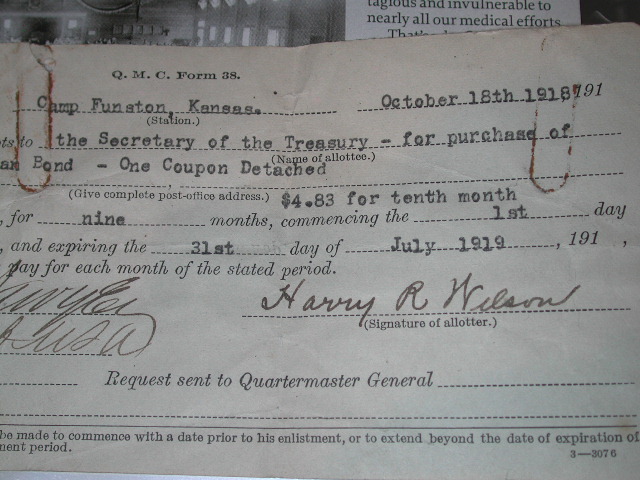 tagious and invulnerable to
nearly all our medical efforts
That's
Q. M. C. Form 38.
Camp Funston, Kansas. October 18th 1918, 191
(Station.)
ts to the Secretary of the Treasury - for purchase of
(Name of allottee.)
an Bond - One Coupon Detached
(Give complete post-office address.) $4.83 for tenth month
, for nine months, commencing the 1st day
, and expiring the 31st day of July 1919, 191 ,
pay for each month of the stated period.
Harry R Wilson
(Signature of allotter.)
USA
Request sent to Quartermaster General
be made to commence with a date prior to his enlistment, or to extend beyond the date of expiration of
ment period.
3—3076